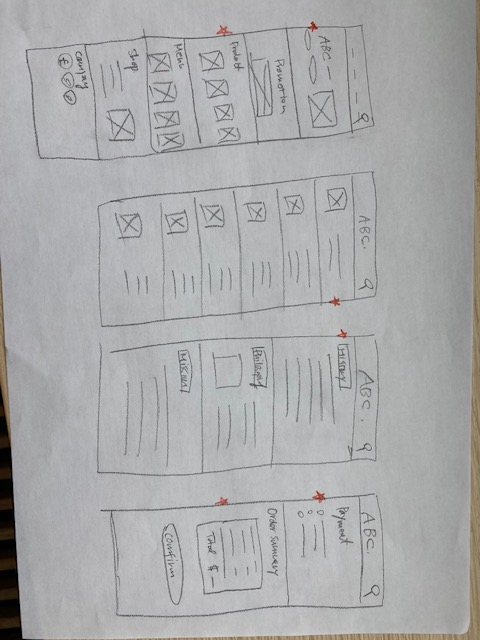 ABC
Promotion
Product
Menu
Shop
Company
ABC.
ABC.
History
Philosophy
Mission
ABC.
Payment
Order Summary
Total $ -
Confirm